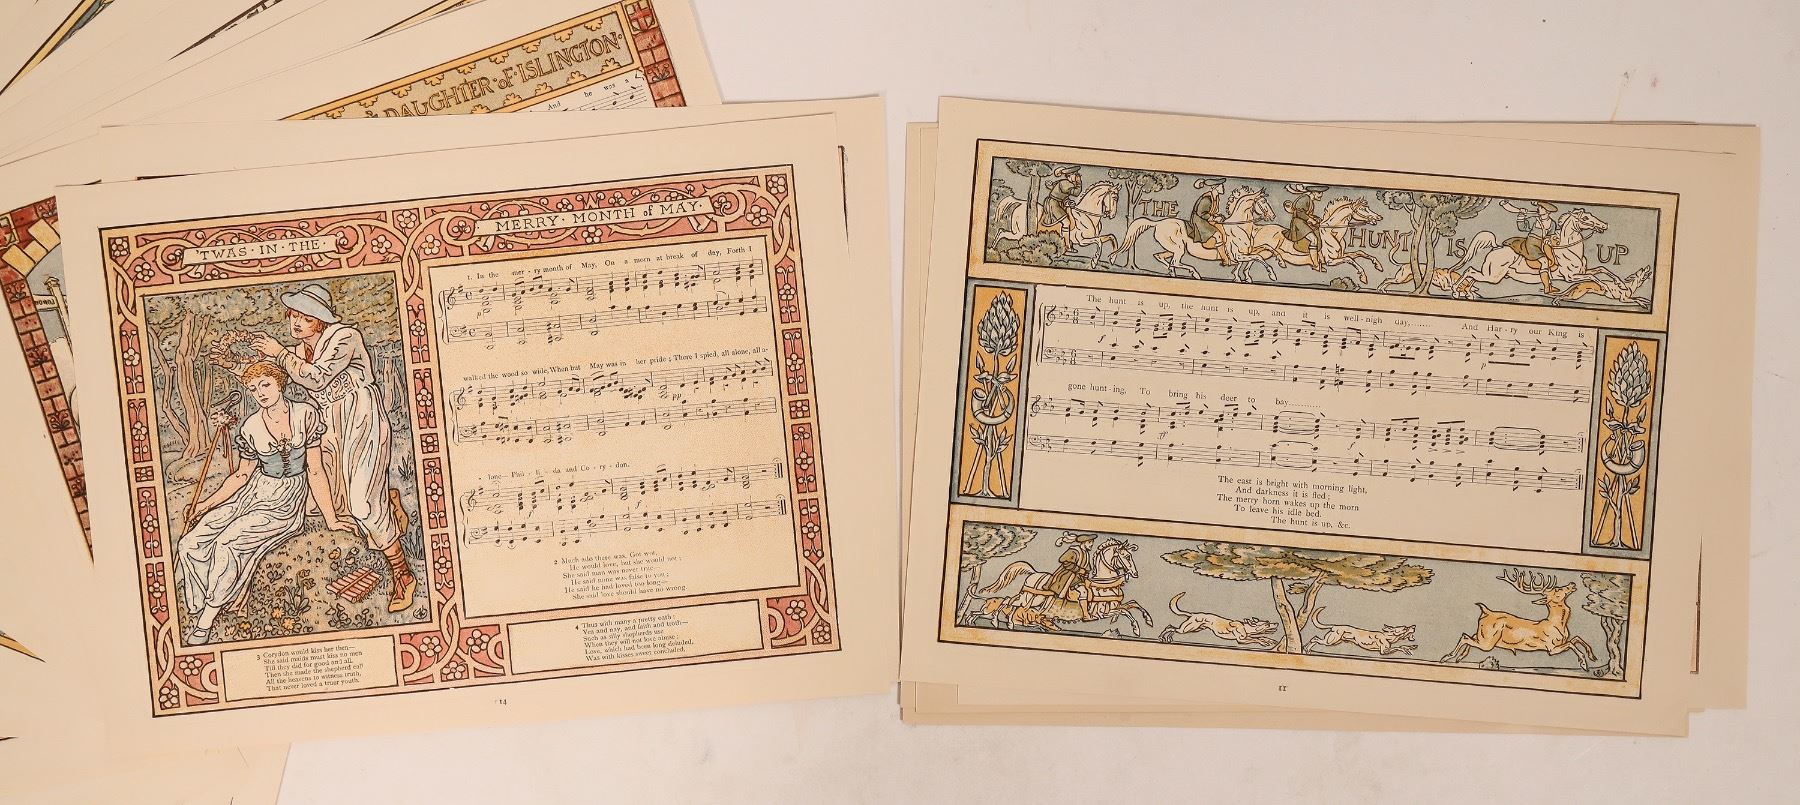 & DAUGHTER · OF · ISLINGTON ·
And he was a
'TWAS · IN · THE ·
MERRY · MONTH of MAY ·
1. In the mer - ry month of May, On a morn at break of day, Forth I
walked the wood so wide, When but May was in her pride; There I spied, all alone, all a-
lone Phil - li - da and Co - ry - don.
2 Much ado there was, Got wot,
He would love, but she would not;
She said man was never true—
He said none was false to you;
He said he had loved too long—
She said love should have no wrong.
3 Corydon would kiss her then—
She said maids must kiss no men
Till they did for good and all.
Then she made the shepherd call
All the heavens to witness truth,
That never loved a truer youth.
4 Thus with many a pretty oath;
Yea and nay, and faith and troth—
Such as silly shepherds use
When they will not love abuse;
Love, which had been long deluded,
Was with kisses sweet concluded.
14
THE HUNT IS UP
The hunt is up, the hunt is up, and it is well-nigh day,........ And Har - ry our King is
gone hunt - ing, To bring his deer to bay............
The east is bright with morning light,
And darkness it is fled;
The merry horn wakes up the morn
To leave his idle bed.
The hunt is up, &c.
11